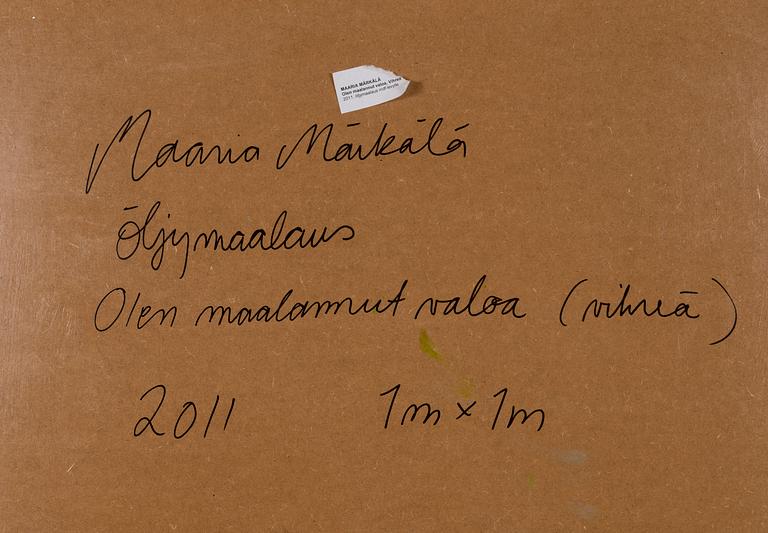 MAARIA MÄRKÄLÄ
Olen maalannut valoa, Vihreä
2011, öljymaalaus mdf-levylle
Maaria Märkälä
Öljymaalaus
Olen maalannut valoa (vihreä)
2011 1m x 1m